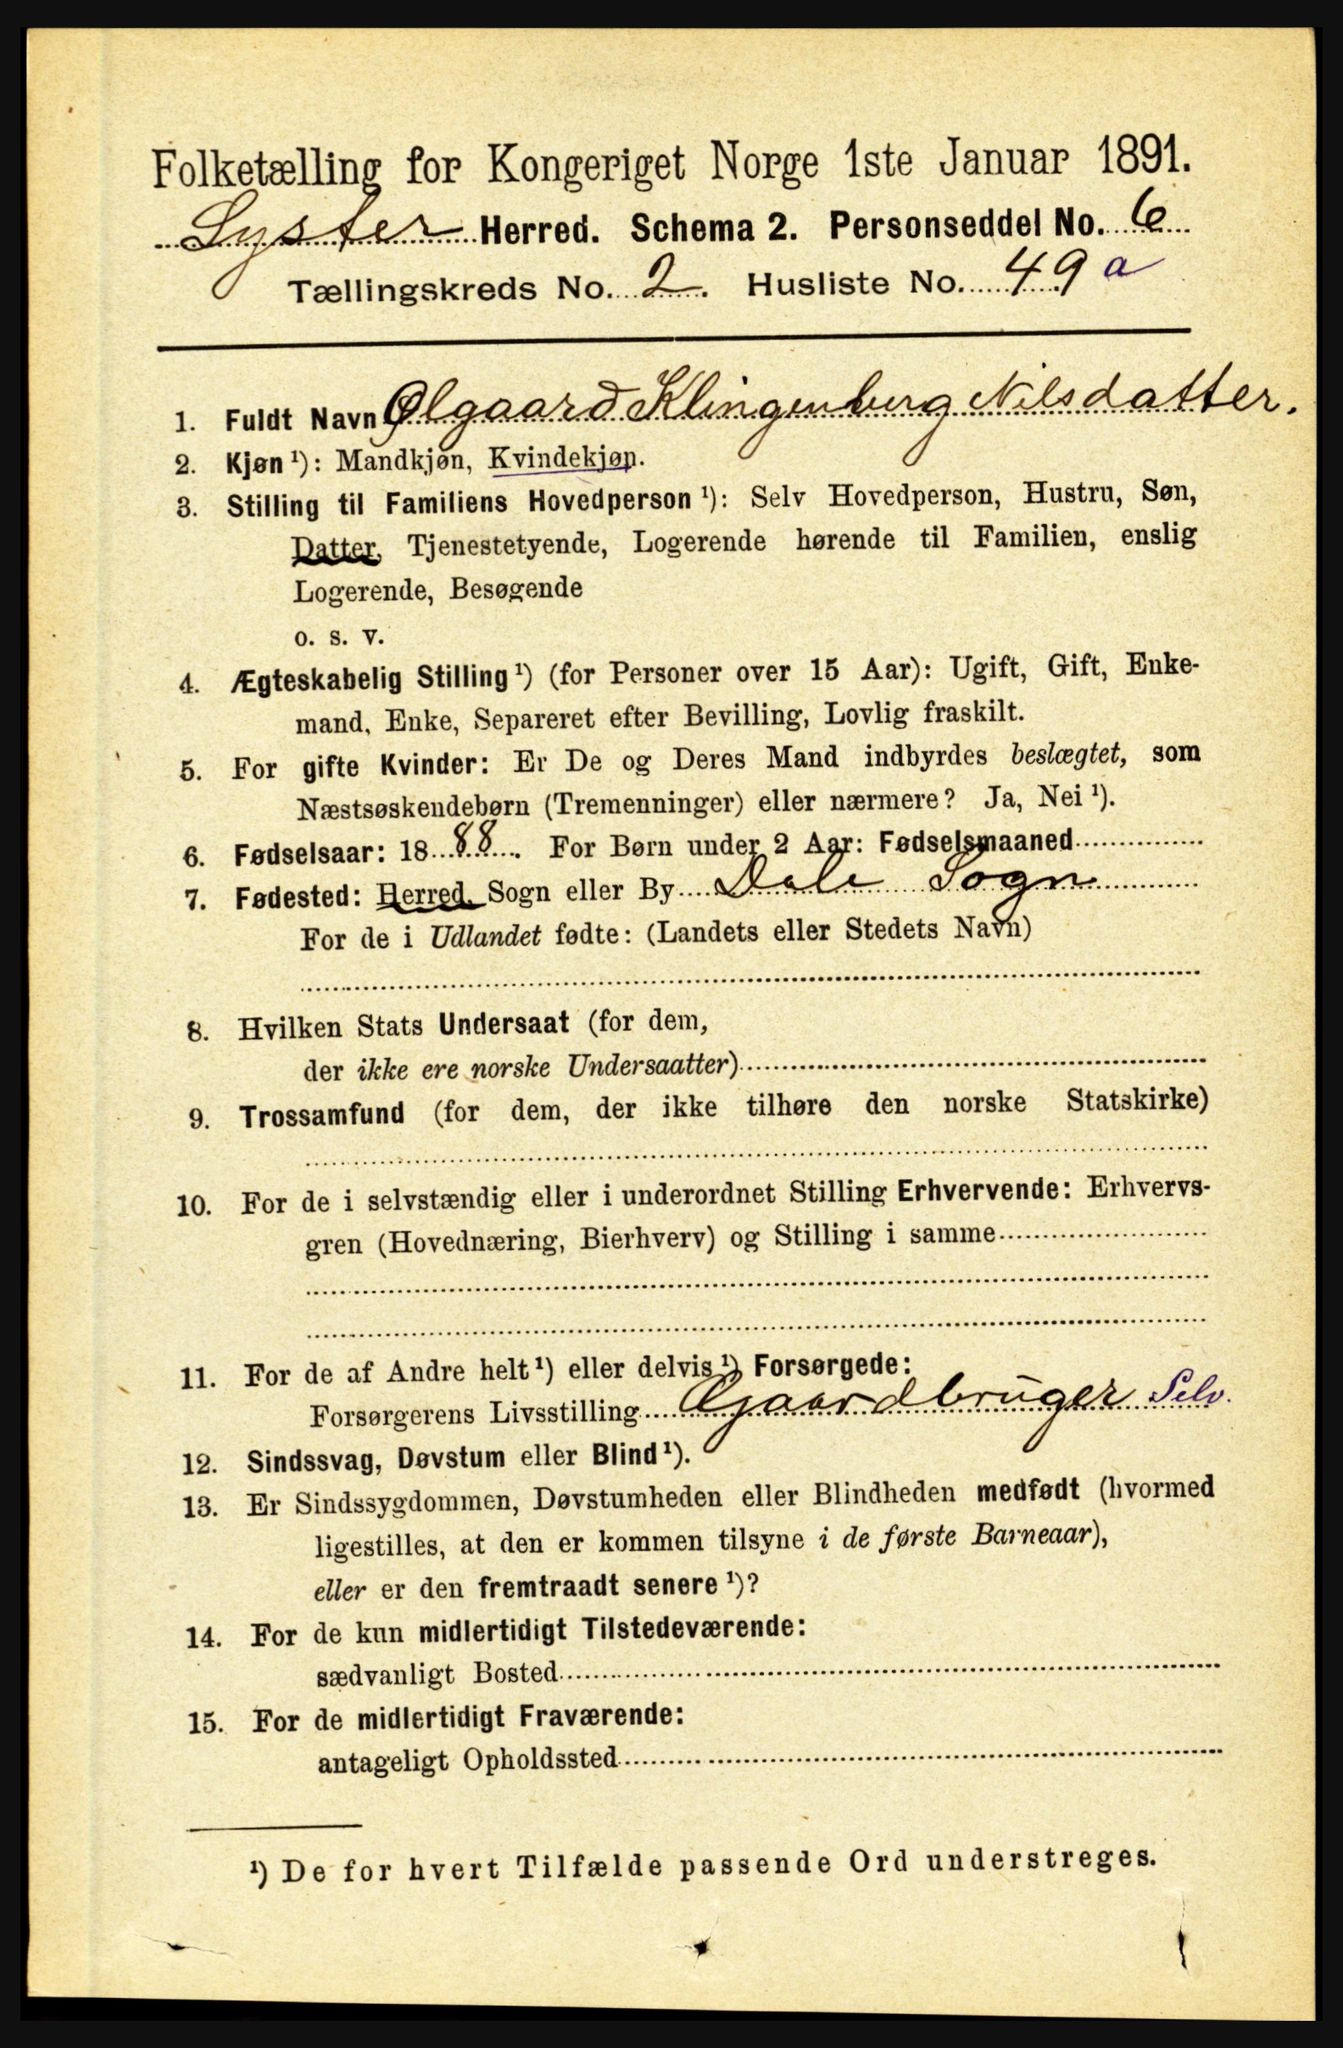 Folketælling for Kongeriget Norge 1ste Januar 1891.
Lyster Herred. Schema 2. Personseddel No. 6
Tællingskreds No. 2. Husliste No. 49 a
1. Fuldt Navn Ølgaard Klingenberg Nilsdatter.
2. Kjøn ¹): Mandkjøn, Kvindekjøn.
3. Stilling til Familiens Hovedperson ¹): Selv Hovedperson, Hustru, Søn,
Datter, Tjenestetyende, Logerende hørende til Familien, enslig
Logerende, Besøgende
o. s. v.
4. Ægteskabelig Stilling ¹) (for Personer over 15 Aar): Ugift, Gift, Enke-
mand, Enke, Separeret efter Bevilling, Lovlig fraskilt.
5. For gifte Kvinder: Er De og Deres Mand indbyrdes beslægtet, som
Næstsøskendebørn (Tremenninger) eller nærmere? Ja, Nei ¹).
6. Fødselsaar: 1888. For Børn under 2 Aar: Fødselsmaaned
7. Fødested: Herred, Sogn eller By Dale Sogn
For de i Udlandet fødte: (Landets eller Stedets Navn)
8. Hvilken Stats Undersaat (for dem,
der ikke ere norske Undersaatter)
9. Trossamfund (for dem, der ikke tilhøre den norske Statskirke)
10. For de i selvstændig eller i underordnet Stilling Erhvervende: Erhvervs-
gren (Hovednæring, Bierhverv) og Stilling i samme
11. For de af Andre helt ¹) eller delvis ¹) Forsørgede:
Forsørgerens Livsstilling Gaardbruger Selv.
12. Sindssvag, Døvstum eller Blind ¹).
13. Er Sindssygdommen, Døvstumheden eller Blindheden medfødt (hvormed
ligestilles, at den er kommen tilsyne i de første Barneaar),
eller er den fremtraadt senere ¹)?
14. For de kun midlertidigt Tilstedeværende:
sædvanligt Bosted
15. For de midlertidigt Fraværende:
antageligt Opholdssted
¹) De for hvert Tilfælde passende Ord understreges.